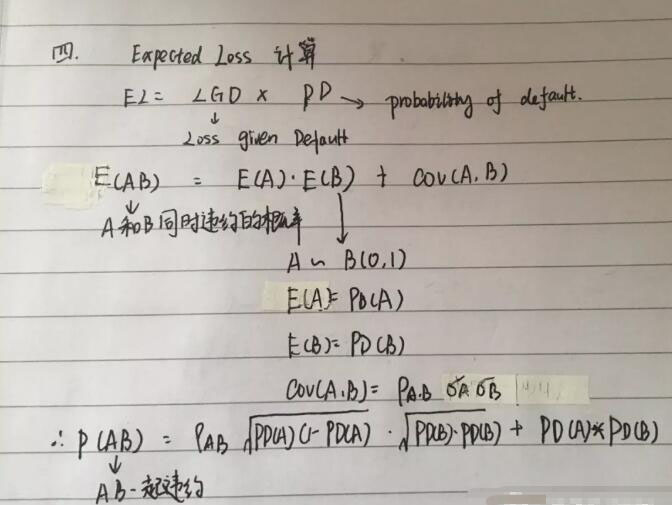 四. Expected Loss 计算
EL = LGD × PD → probability of default.
↓
Loss given Default
E(AB) = E(A)·E(B) + COV(A,B)
↓
A和B同时违约的概率
A ~ B(0,1)
E(A) = PD(A)
E(B) = PD(B)
COV(A,B) = ρA.B σA σB
∴ P(AB) = ρAB √PD(A)(1-PD(A)) · √PD(B)·PD(B) + PD(A)*PD(B)
↓
AB一起违约